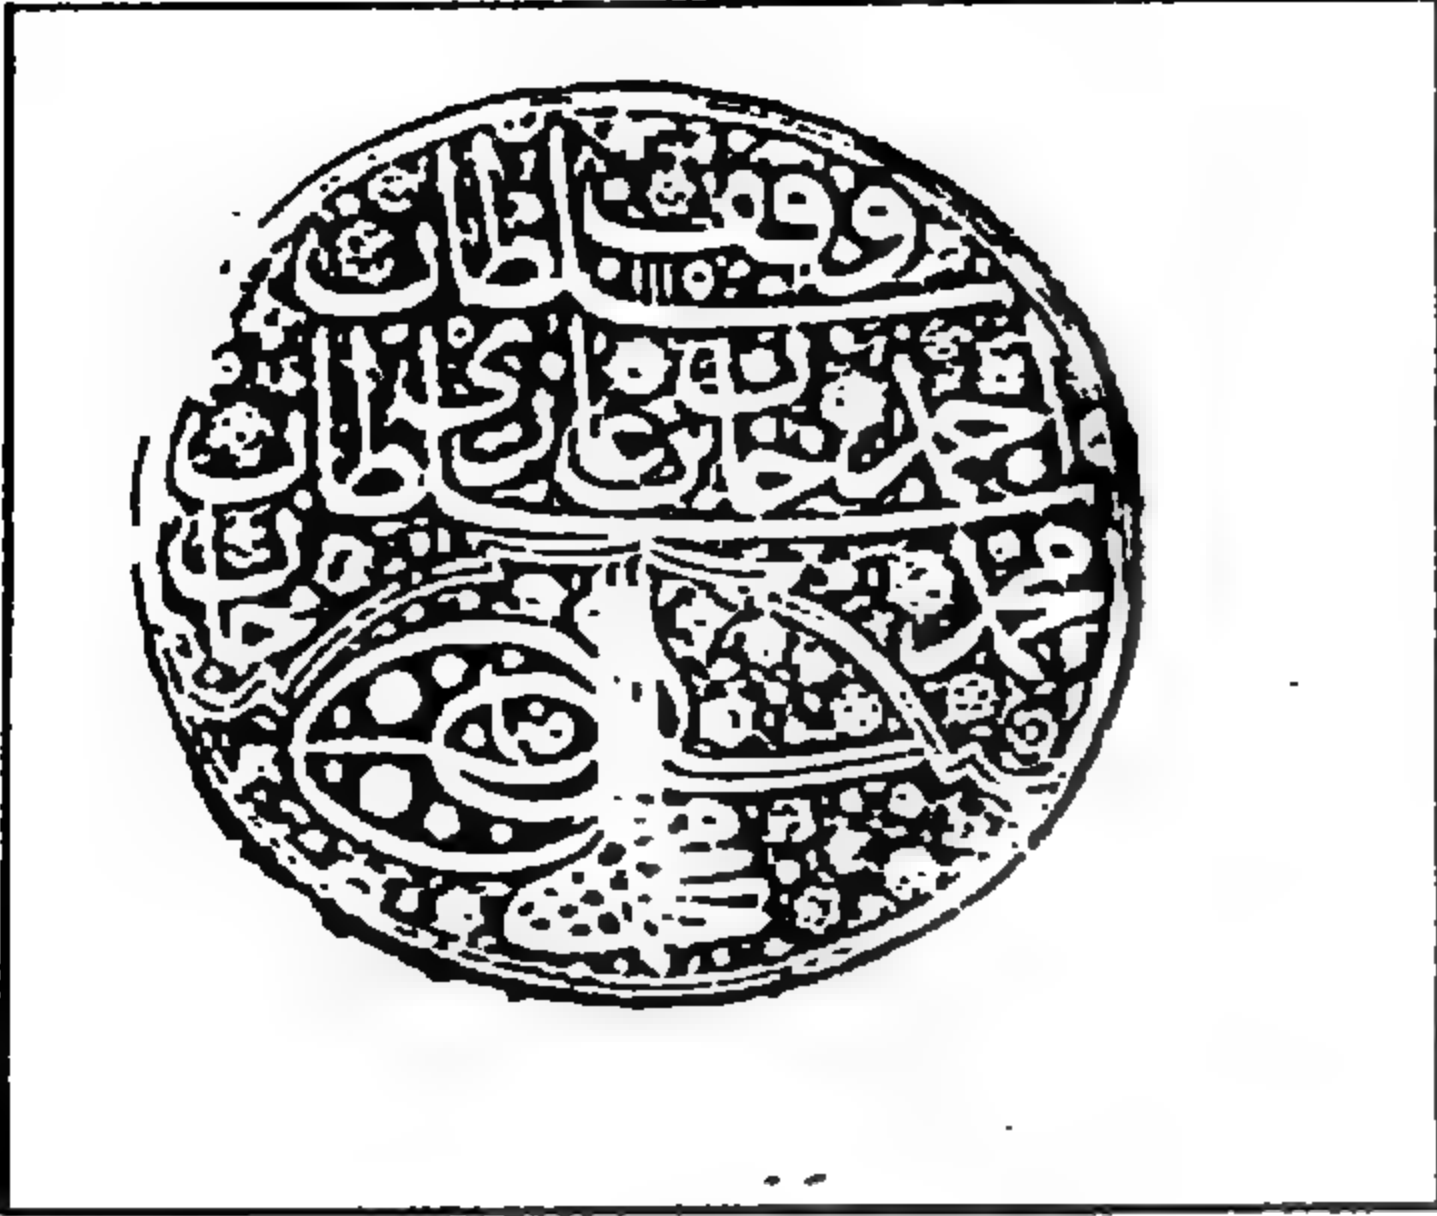 وقف سلطان
احمد خان بن غازى سلطان
محمد خان